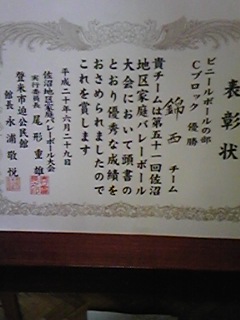 表彰状
ビニールボールの部
Cブロック 優勝
錦西 チーム
貴チームは第五十一回佐沼
地区家庭バレーボール
大会において頭書の
とおり優秀な成績を
おさめられましたので
これを賞します
平成二十年六月二十九日
佐沼地区家庭バレーボール大会
実行委員長 尾形重雄
登米市迫公民館
館長 永浦敬悦